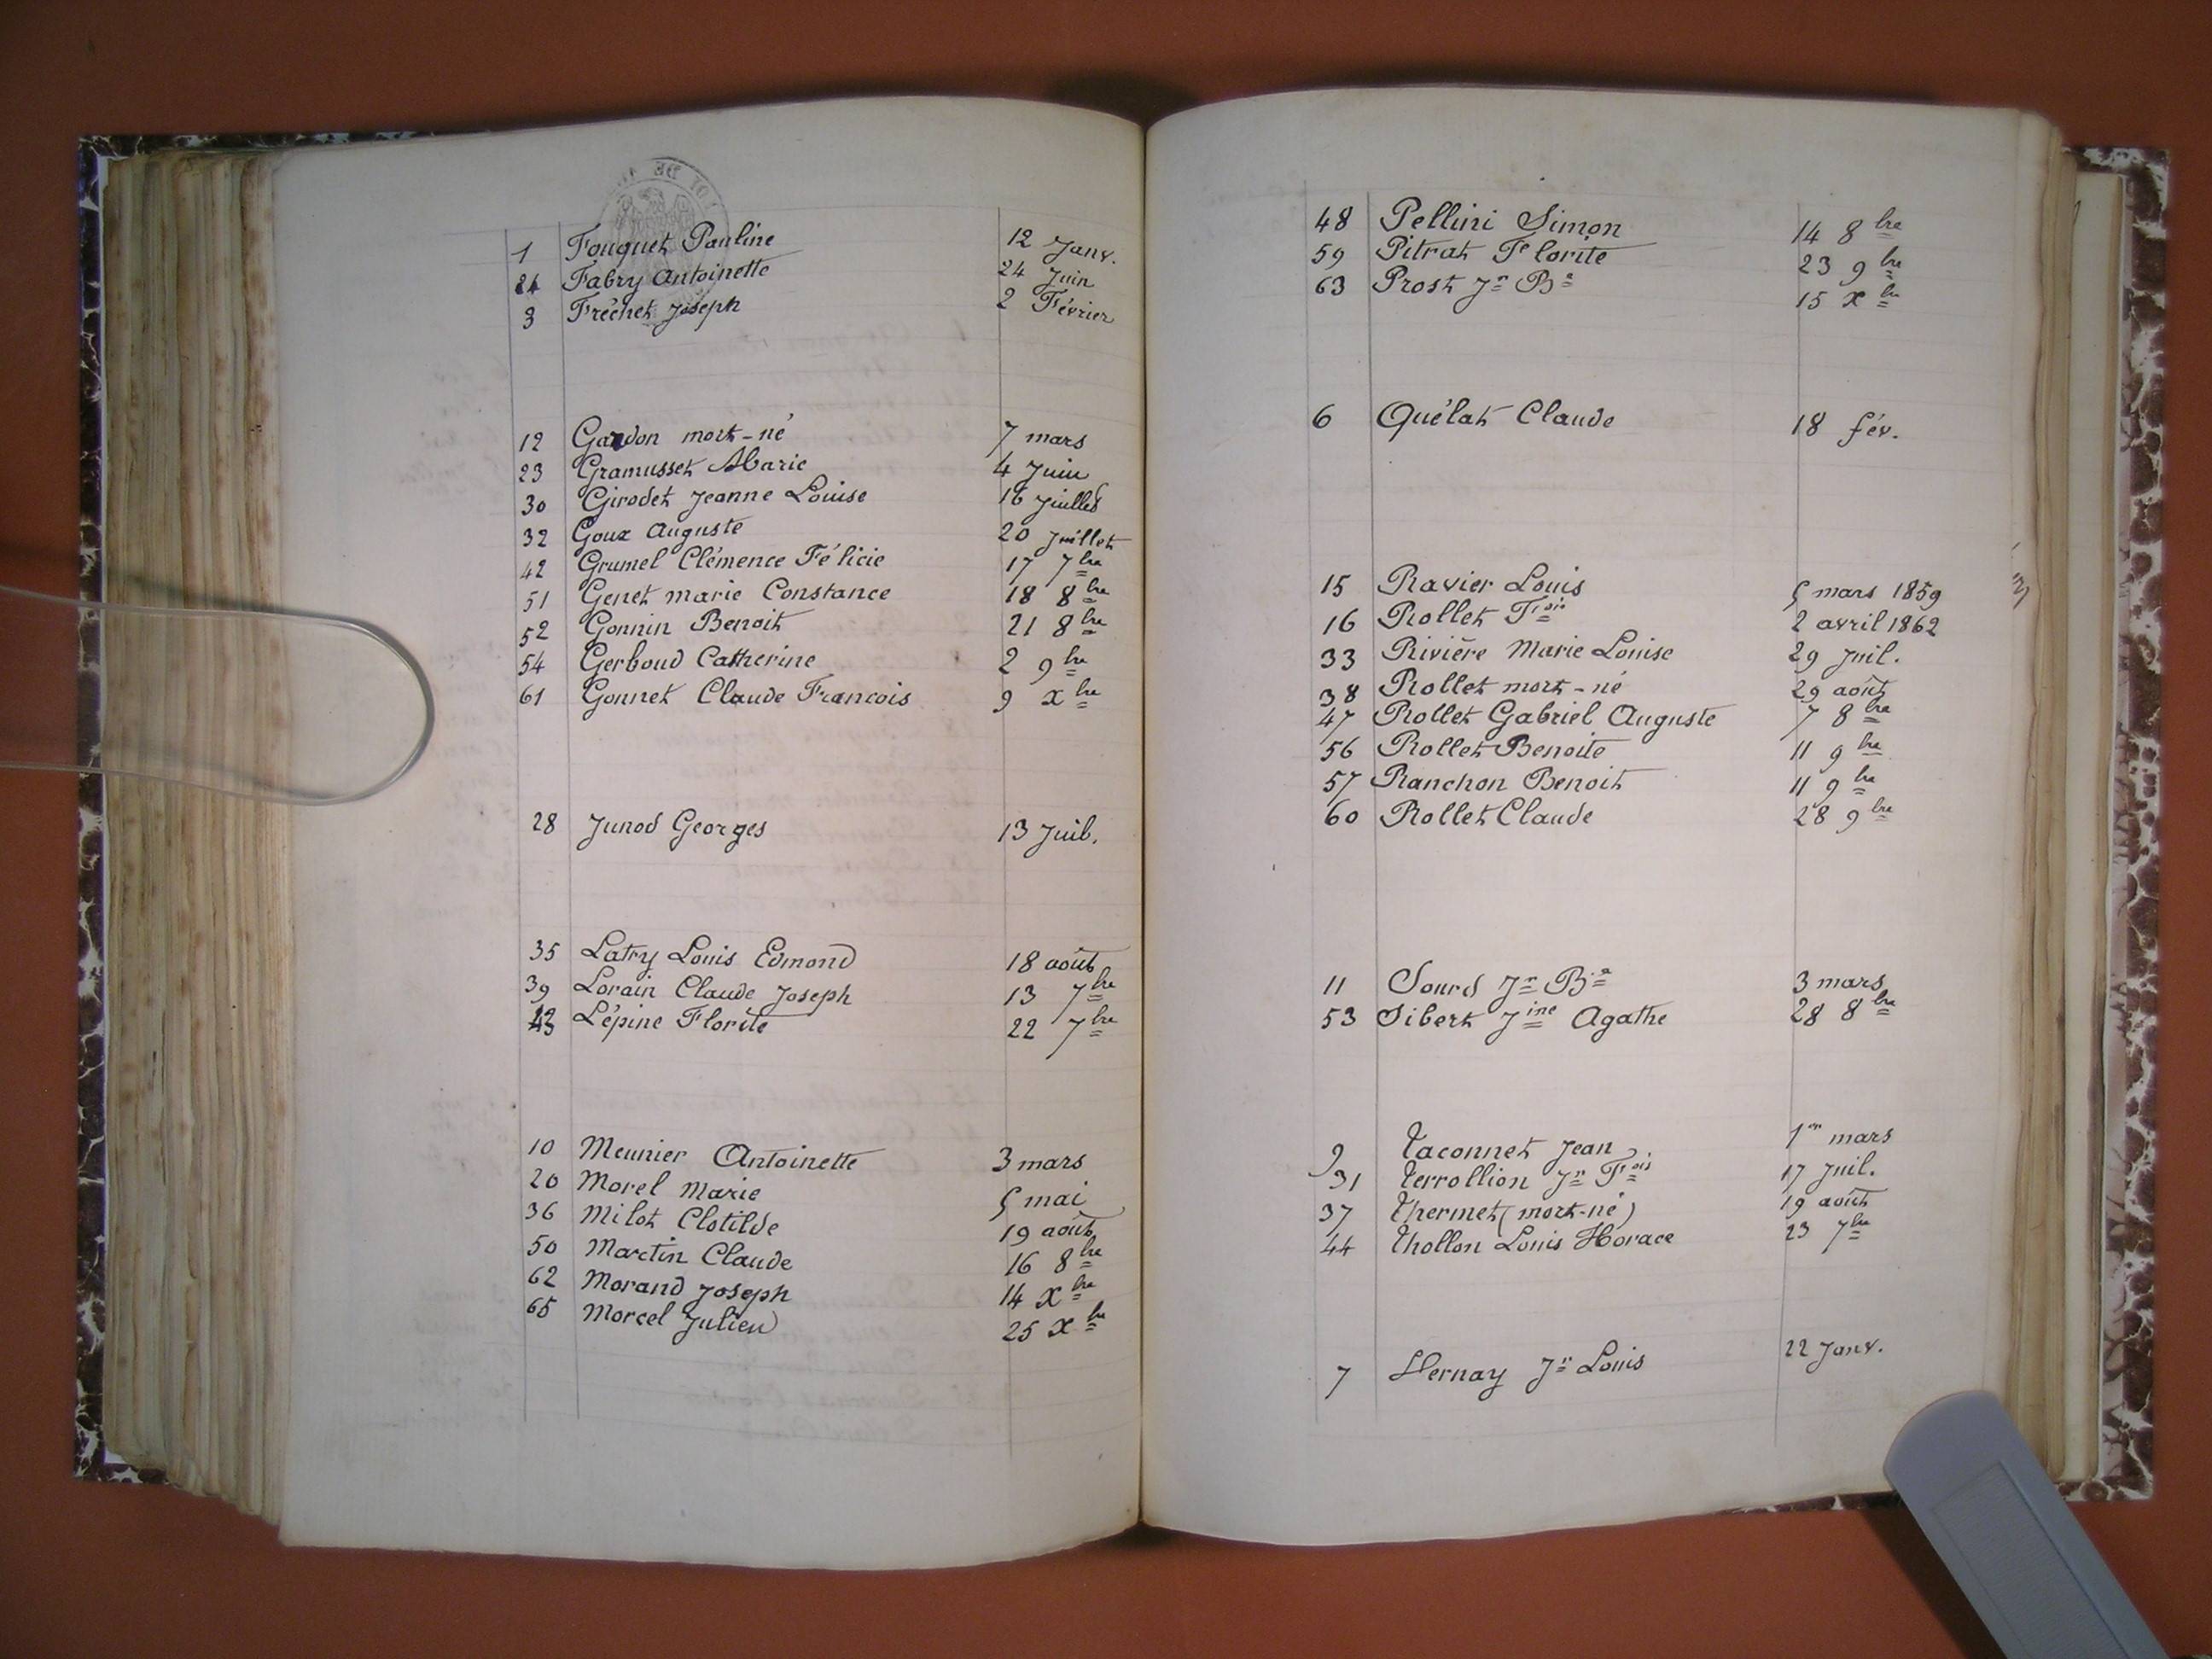 1 Fouquet Pauline 12 Janv.
24 Fabry Antoinette 24 Juin
3 Fréchet Joseph 2 Février
12 Gardon mort-né 7 mars
23 Gramusset Marie 4 Juin
30 Girodet Jeanne Louise 16 Juillet
32 Goux Auguste 20 Juillet
42 Grumel Clémence Félicie 17 7bre
51 Genet marie Constance 18 8bre
52 Gonnin Benoit 21 8bre
54 Gerboud Catherine 2 9bre
61 Gonnet Claude Francois 9 xbre
28 Junod Georges 13 Juil.
35 Latry Louis Edmond 18 août
39 Lorain Claude Joseph 13 7bre
43 Lépine Florite 22 7bre
10 Meunier Antoinette 3 mars
20 Morel Marie 5 mai
36 Milot Clotilde 19 août
50 Martin Claude 16 8bre
62 Morand Joseph 14 xbre
65 Morcel Julien 25 xbre
48 Pellini Simon 14 8bre
59 Pitrat Florite 23 9bre
63 Prost Jn Bte 15 xbre
6 Quélat Claude 18 fév.
15 Ravier Louis 5 mars 1859
16 Rollet Fois 2 avril 1862
33 Rivière Marie Louise 29 Juil.
38 Rollet mort-né 29 août
47 Rollet Gabriel Auguste 7 8bre
56 Rollet Benoite 11 9bre
57 Ranchon Benoit 11 9bre
60 Rollet Claude 28 9bre
11 Sourd Jn Bte 3 mars
53 Sibert Jine Agathe 28 8bre
9 Taconnet Jean 1er mars
31 Terrollion Jn Fois 17 Juil.
37 Thermet (mort-né) 19 août
44 Thollon Louis Horace 23 7bre
7 Vernay Jn Louis 22 Janv.